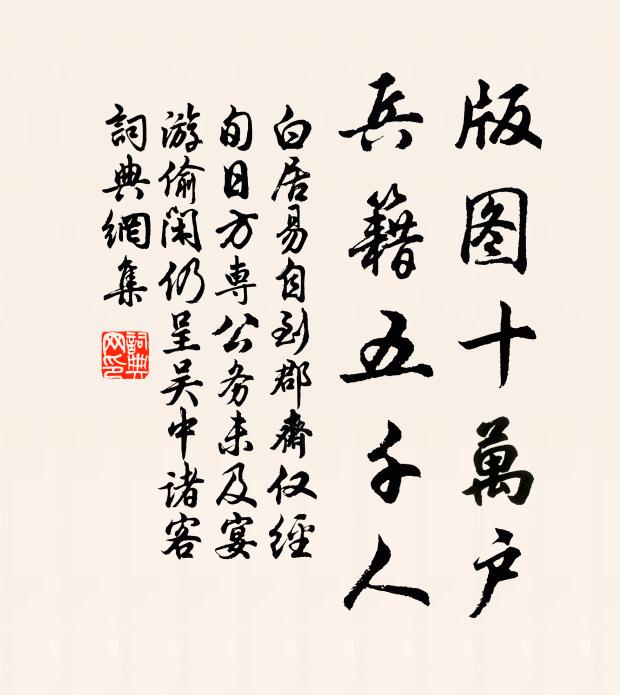 版图十萬户
兵籍五千人
白居易自到郡齋仅經
旬日方専公务未及宴
游偷闲仍呈吴中诸客
詞典網集
詞典网印